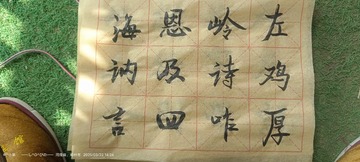 左鸡厚
岭诗咋
恩及四
海讷言